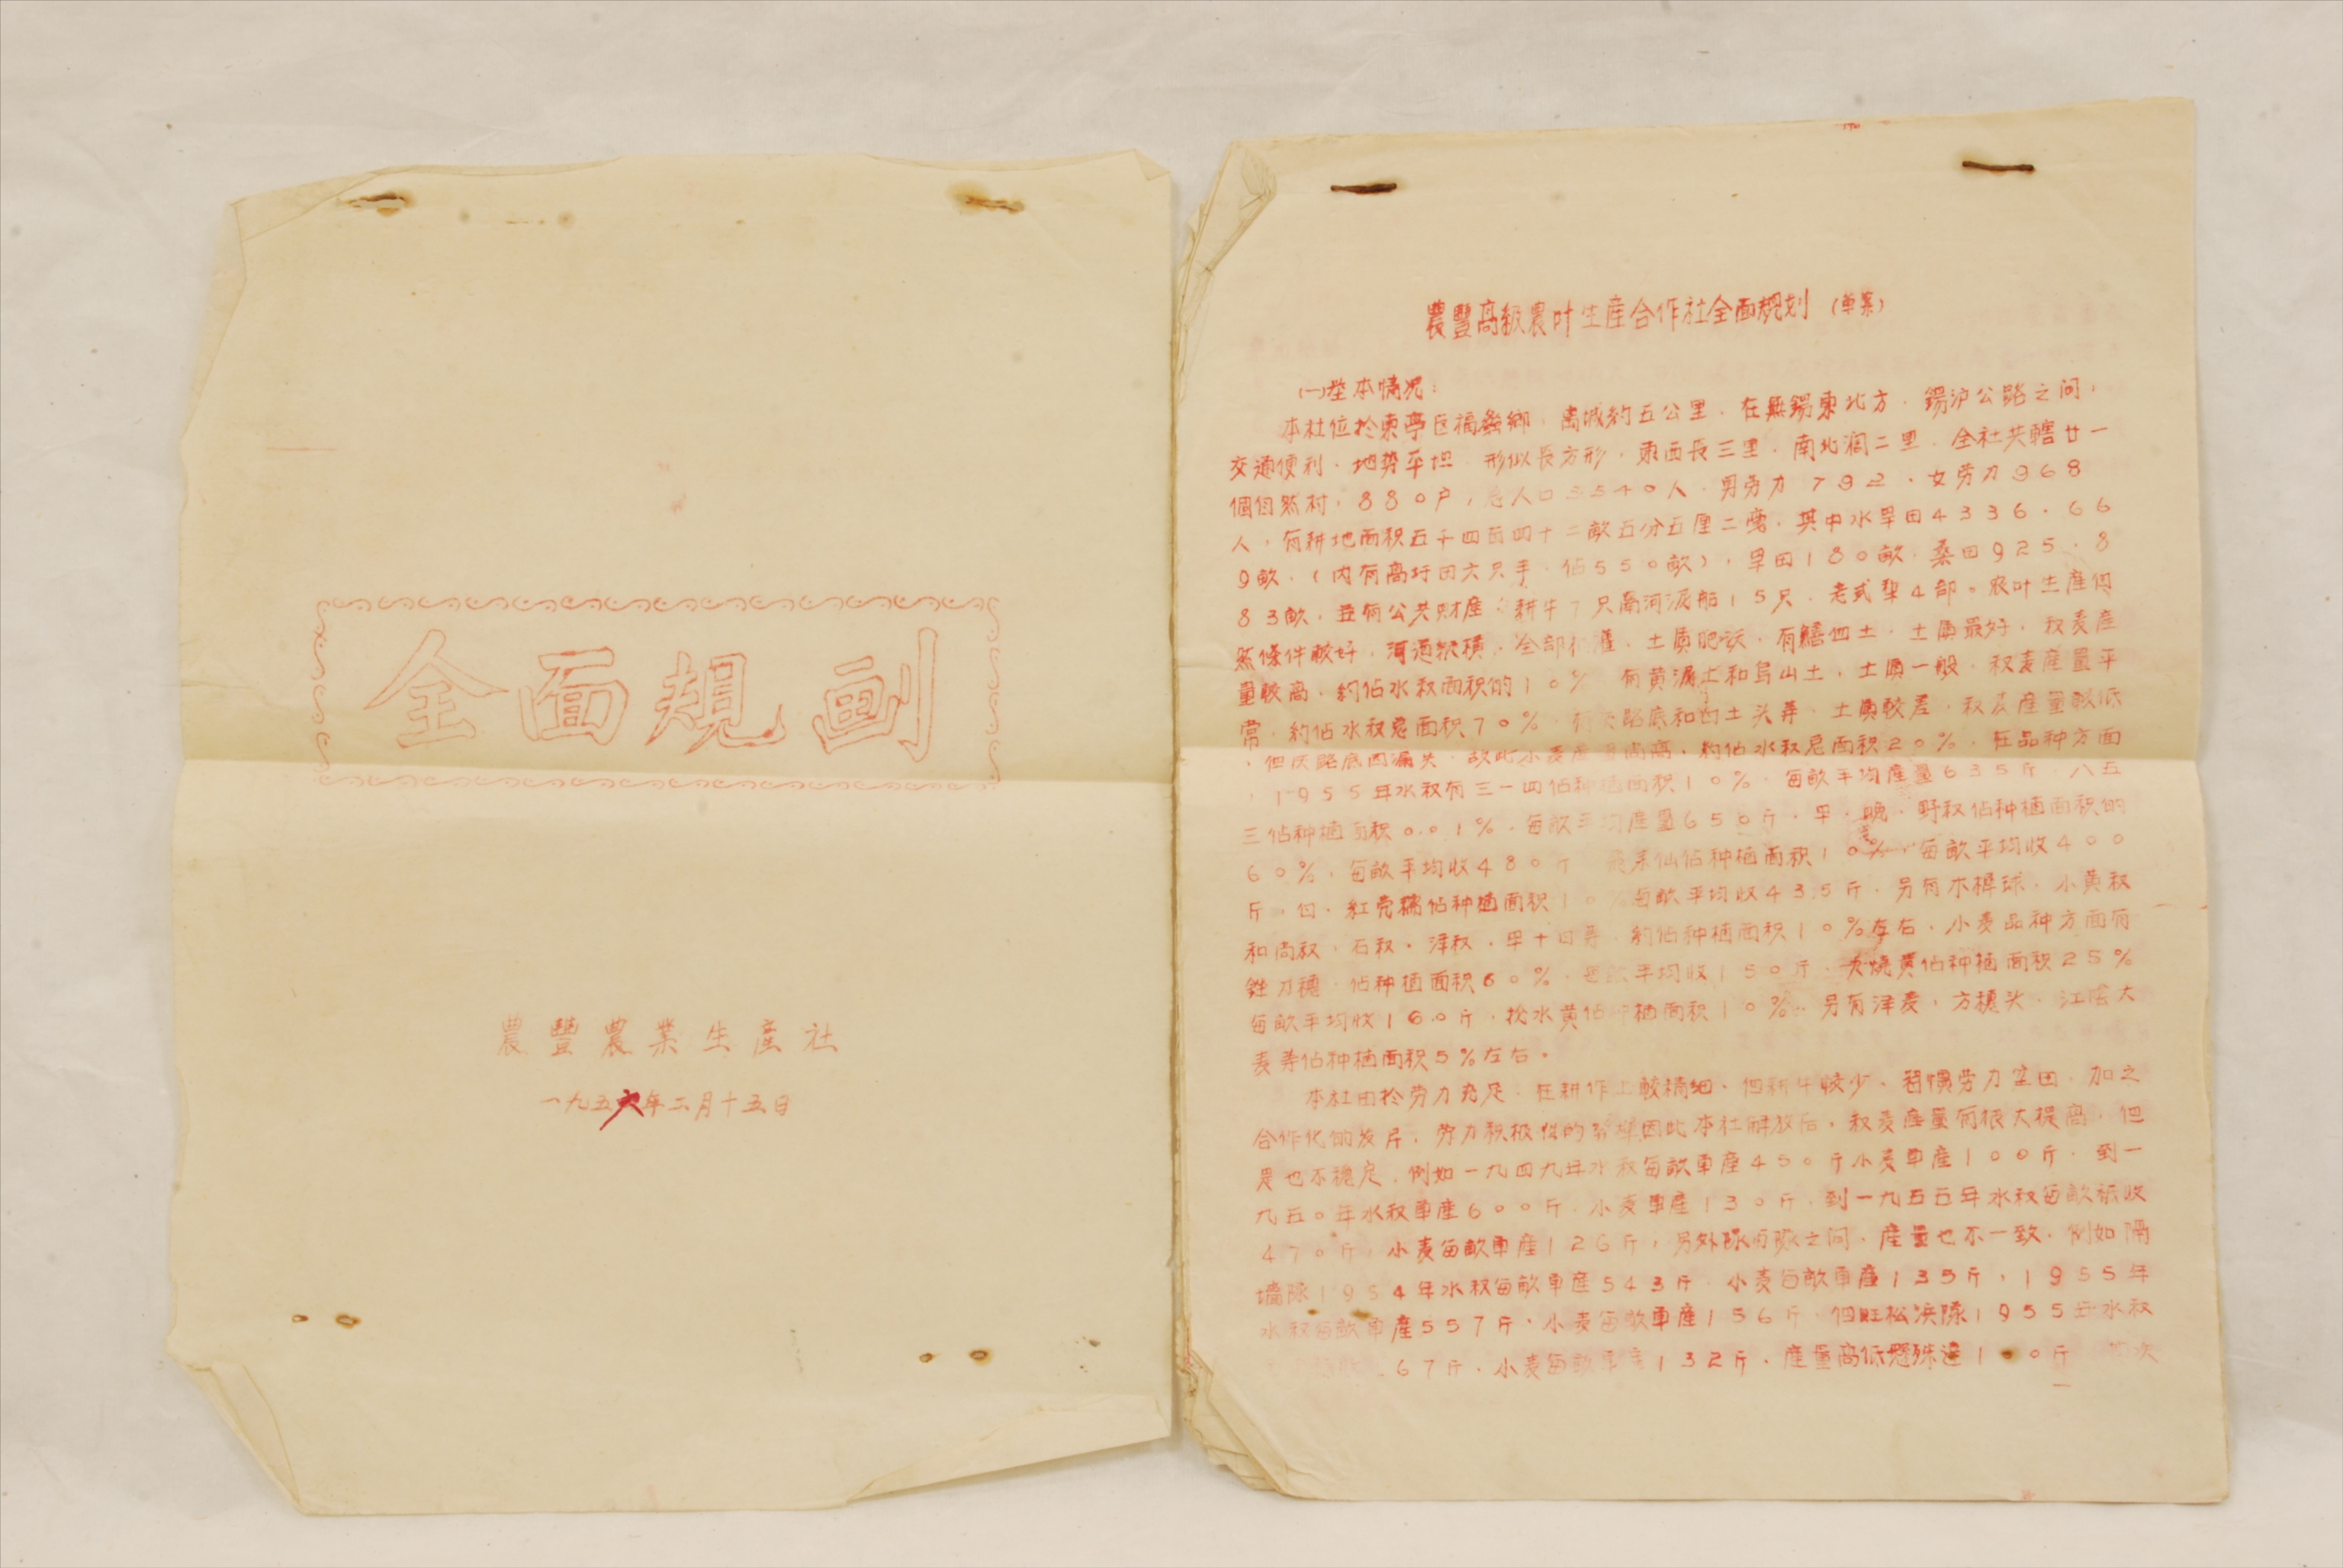 全面規劃
農豐農業生產社
一九五六年二月十五日
農豐高級農叶生產合作社全面規划（草案）
㈠基本情况：
本社位於東亭区福發鄉，离城約五公里．在無錫東北方．錫沪公路之间，
交通便利．地势平坦．形似長方形．東西長三里．南北澗二里．全社共轄廿一
個自然村，880户，总人口3540人．男劳力792．女劳力968
人，有耕地面积五千四百四十二畝五分五厘二毫．其中水旱田4336.66
9畝．（内有高圩田六只半．佔550畝），旱田180畝．桑田925.8
83畝．並有公共財產：耕牛7只 河泥船15只．老式犁4部。农叶生產自
然條件較好．河道縱横．全部 灌．土質肥沃．有鱔血土．土質最好．稻麦產
量較高．約佔水稻面积的10% 有黄泥土和烏山土，土質一般．稻麦產量平
常．約佔水稻总面积70%．有 底和白土头等．土質較差．稻麦產量較低
．但 底因漏失．故此小麦產量尚高．約佔水稻总面积20%．在品种方面
，1955年水稻有三一四佔种植面积10%．每畝平均產量635斤．八五
三佔种植面积0.01%．每畝平均產量650斤．早．晚．野稻佔种植面积的
60%，每畝平均收480斤 仙佔种植面积10%，每畝平均收400
斤．白．紅壳糯佔种植面积10%每畝平均收435斤．另有木樨球．小黄稻
和尚稻．石稻．洋稻．早十日等．約佔种植面积10%左右．小麦品种方面有
銼刀穗．佔种植面积60%．每畝平均收150斤．火燒黄佔种植面积25%
每畝平均收160斤．搶水黄佔种植面积10%．另有洋麦，方穗头．江陰大
麦等佔种植面积5%左右。
本社由於劳力充足．在耕作上較精細．但耕牛較少．習慣劳力坌田．加之
合作化的发斤．劳力积极 的 因此本社解放后．稻麦產量有很大提高．但
是也不穩定．例如一九四九年水稻每畝單產450斤小麦單產100斤．到一
九五〇年水稻單產600斤．小麦單產130斤．到一九五五年水稻每畝祇收
470斤，小麦每畝單產126斤，另外隊与隊之间．產量也不一致．例如隔
墻隊1954年水稻每畝單產543斤．小麦每畝單產135斤，1955年
水稻每畝單產557斤．小麦每畝單產156斤．但旺松浜隊1955年水稻
67斤．小麦每畝單產132斤．產量高低懸殊達100斤 其次
一